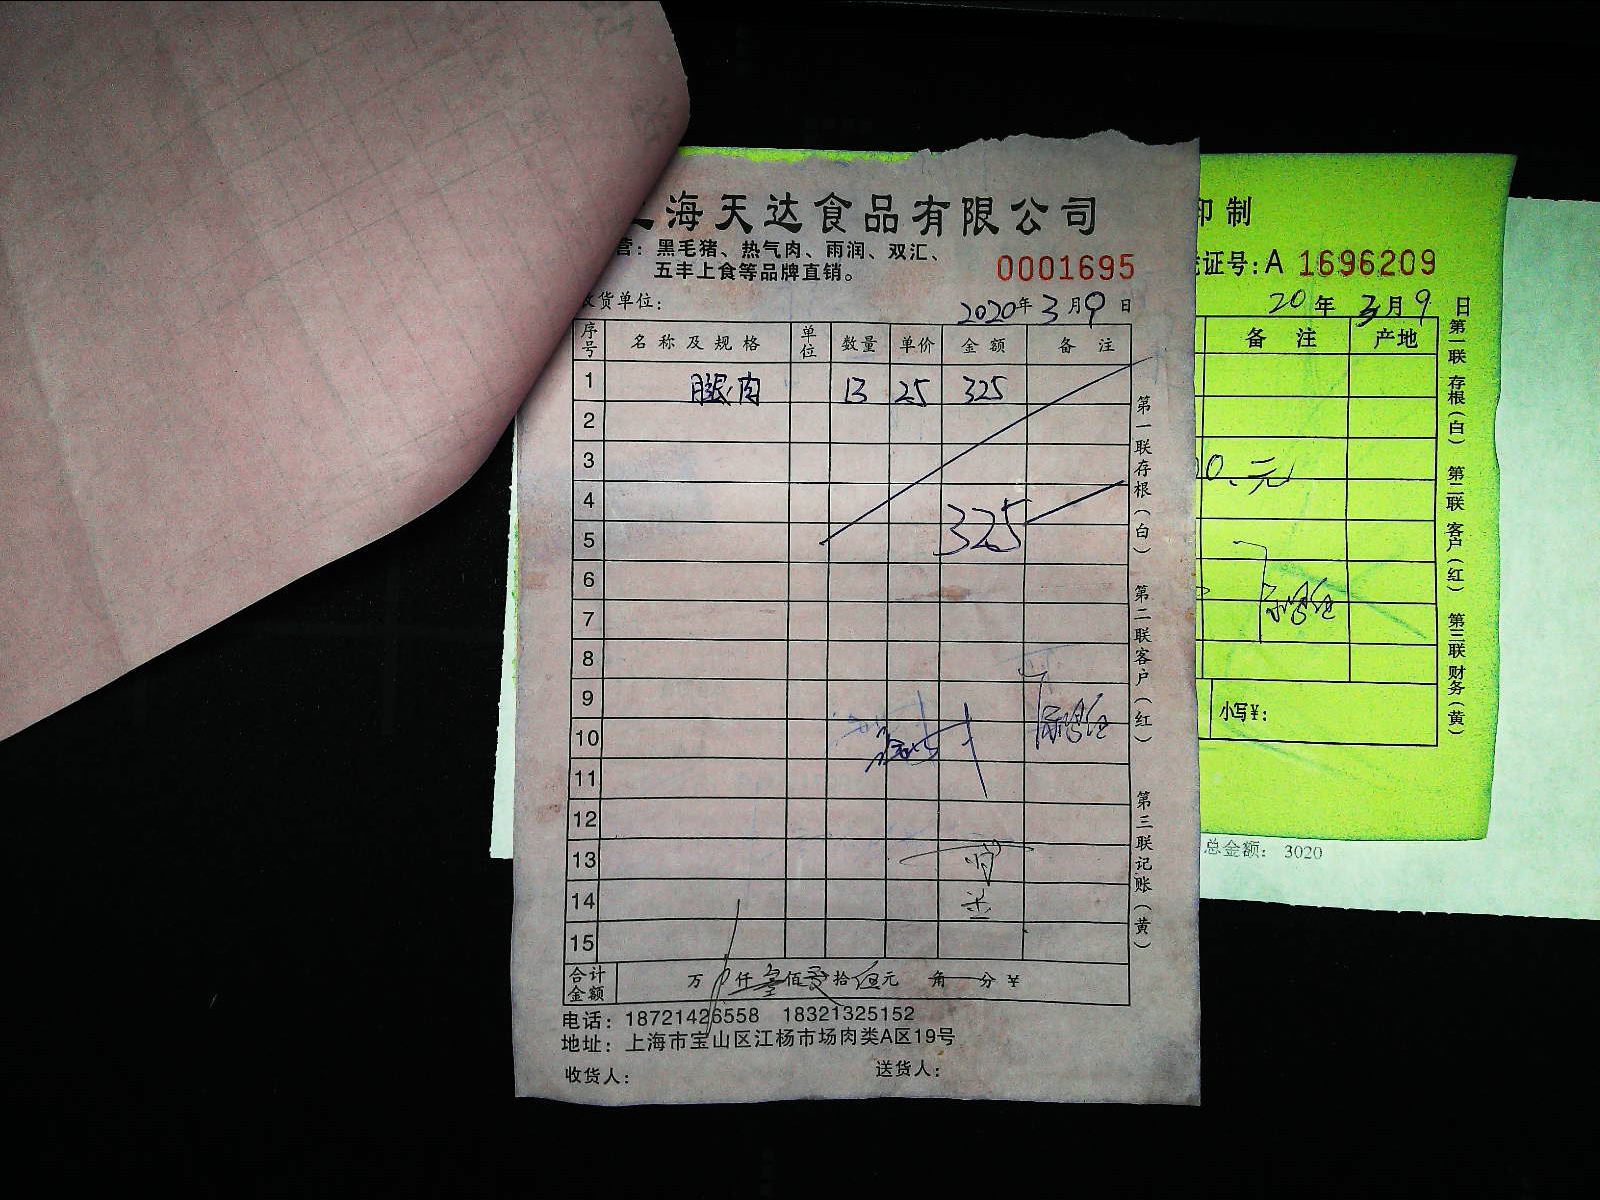 海天达食品有限公司
营：黑毛猪、热气肉、雨润、双汇、
五丰上食等品牌直销。
0001695
收货单位：
2020年3月9日
序号 名称及规格 单位 数量 单价 金额 备注
1 腿肉 13 25 325
2
3
4
5 325
6
7
8
9
10
11
12
13
14
15
合计金额 万 仟 佰 拾伍元 角 分 ¥
电话：18721426558 18321325152
地址：上海市宝山区江杨市场肉类A区19号
收货人： 送货人：
第一联存根（白） 第二联客户（红） 第三联记账（黄）
印制
证号：A 1696209
20年3月9日
备注 产地
00.元
小写¥：
第一联 存根（白） 第二联 客户（红） 第三联 财务（黄）
总金额： 3020